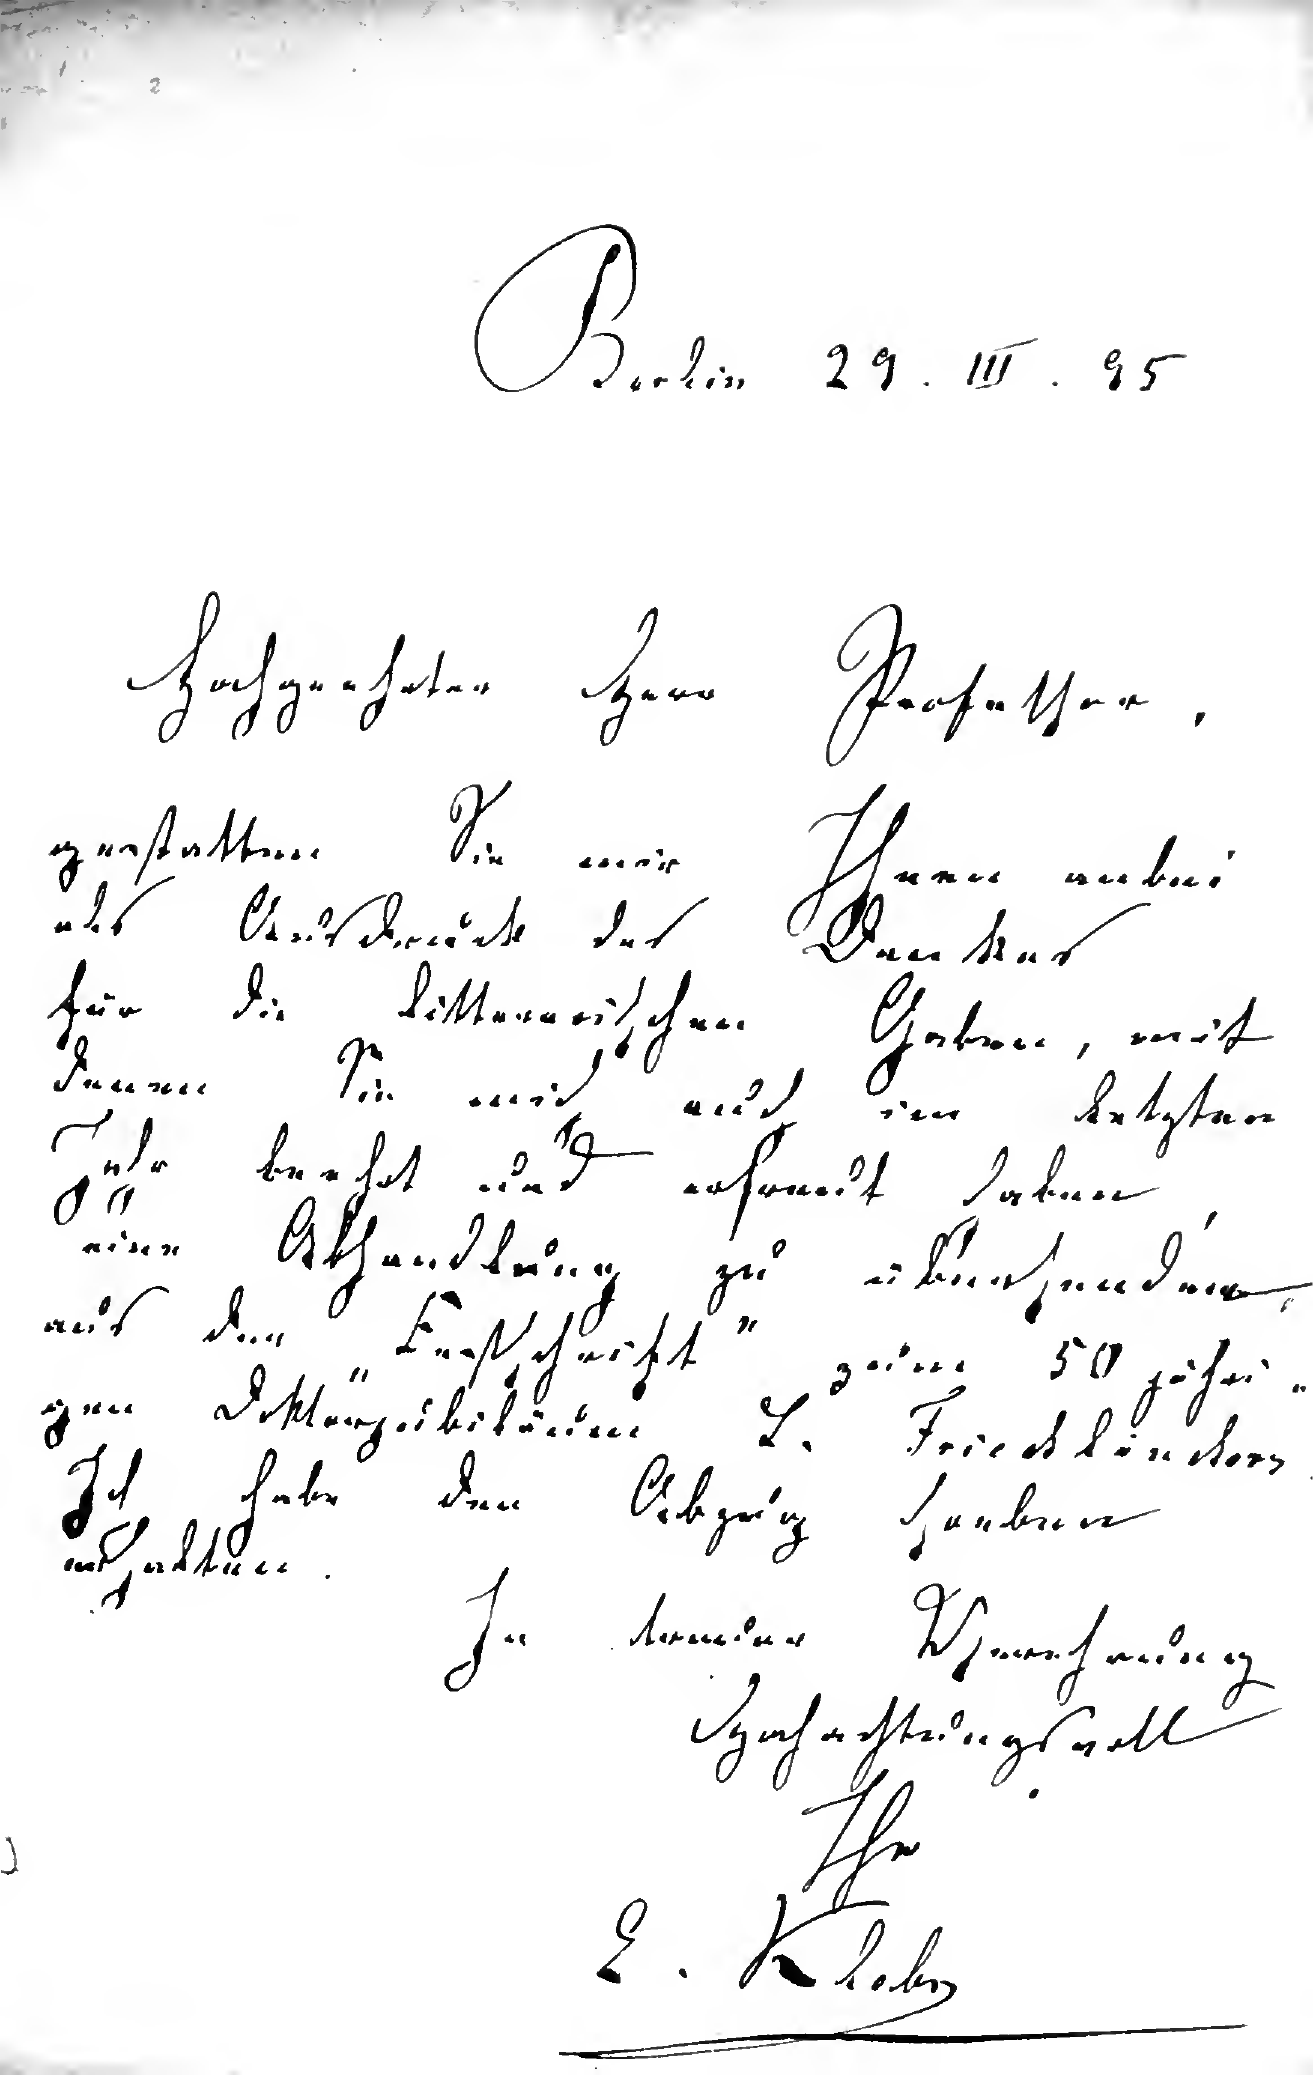 Berlin 29. III. 95
Hochgeehrter Herr Professor,
gestatten Sie mir Ihnen anbei
als Ausdruck des Dankes
für die litterarischen Gaben, mit
denen Sie mich auch im letzten
Jahr beehrt und erfreut haben,
eine Abhandlung zu übersenden,
aus der „Festschrift" zum 50 jähri-
gen Doktorjubiläum L. Friedländers
Ich habe den Abzug soeben
erhalten.
In treuer Verehrung
Hochachtungsvoll
Ihr
E. Klebs